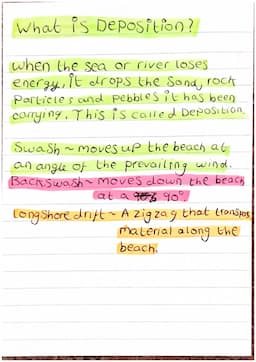 What is Deposition?
When the sea or river loses
energy, it drops the sand, rock
particles and pebbles it has been
carrying. This is called Deposition.
Swash ~ moves up the beach at
an angle of the prevailing wind.
Backswash ~ moves down the beach
at a 90°.
Longshore drift ~ A zigzag that transports
material along the
beach.